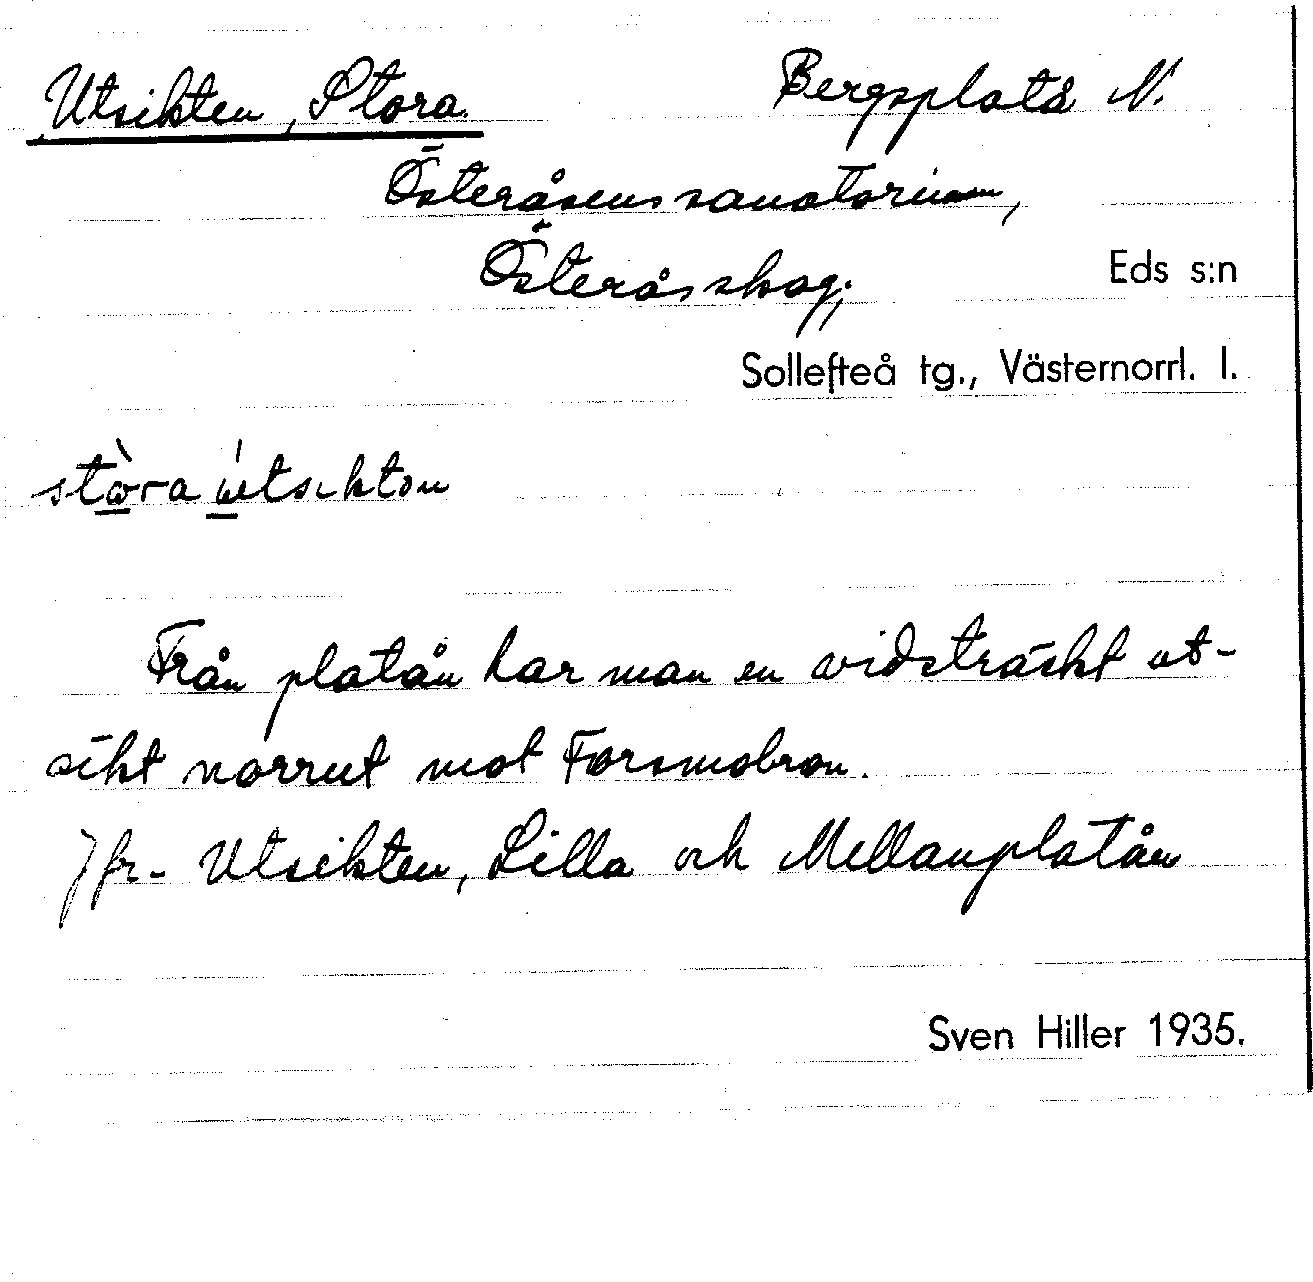 Utsikten, Stora. Bergsplatå N.
Österåsens sanatorium,
Österåsskog; Eds s:n
Sollefteå tg., Västernorrl. l.
Från platån har man en vidsträckt ut-
sikt norrut mot Forsmobron.
Jfr. Utsikten, Lilla och Mellanplatån
Sven Hiller 1935.